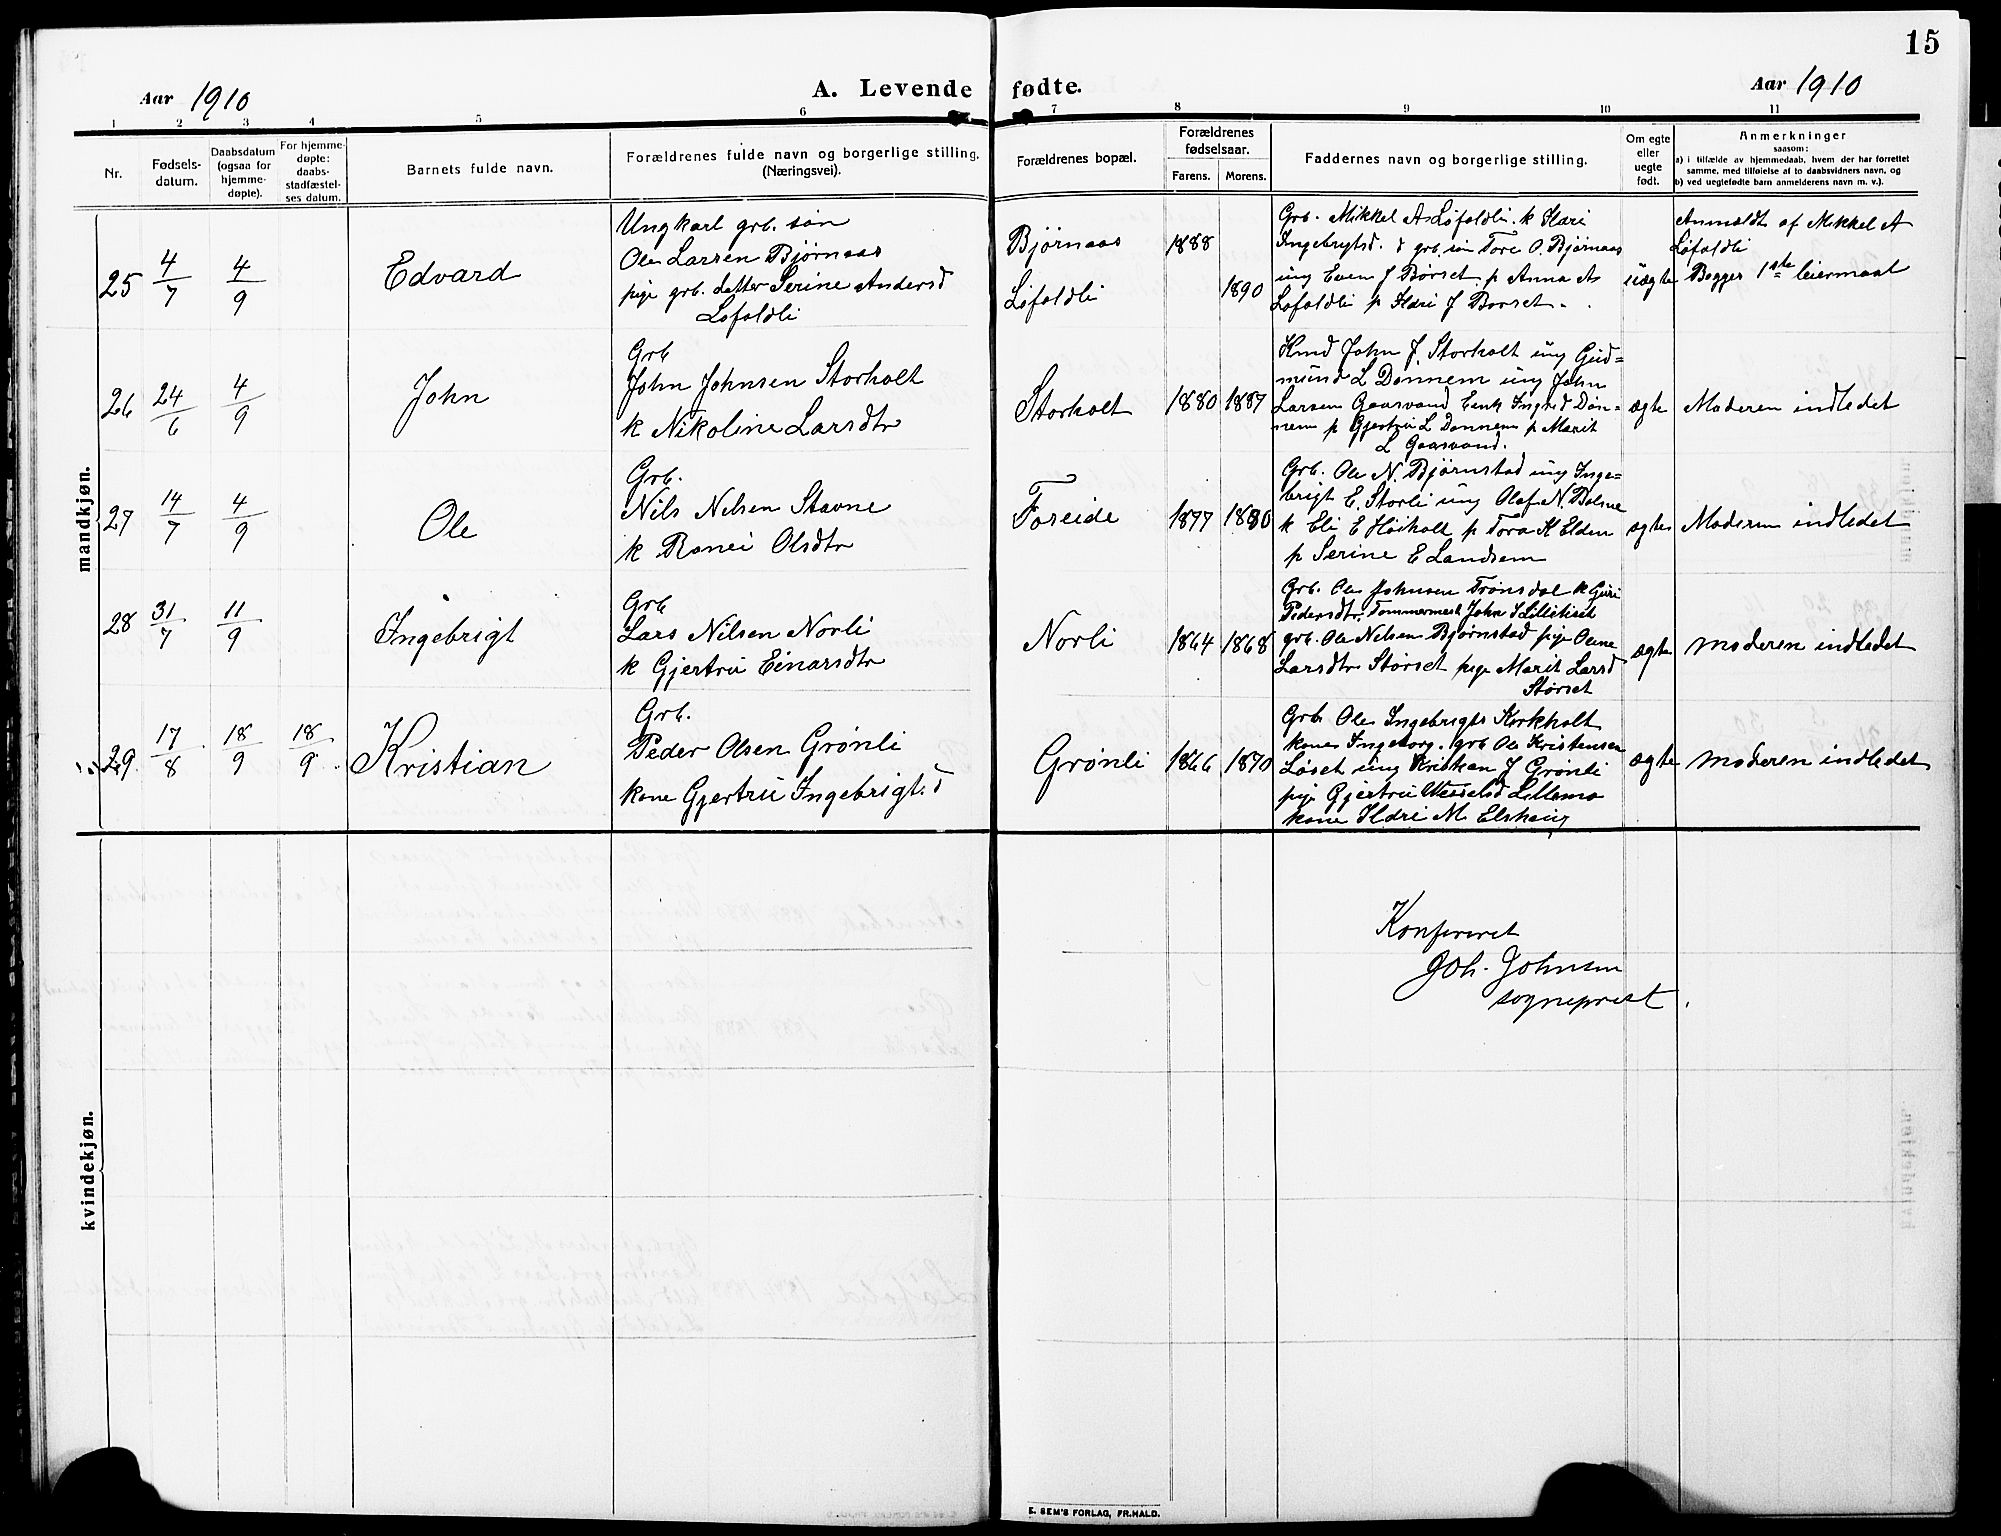 15
Aar 1910
A. Levende fødte.
Aar 1910
1 2 3 4 5 6 7 8 9 10 11
Nr.
Fødsels-
datum.
Daabsdatum
(ogsaa for
hjemme-
døpte).
For hjemme-
døpte:
daabs-
stadfæstel-
ses datum.
Barnets fulde navn.
Forældrenes fulde navn og borgerlige stilling.
(Næringsvei).
Forældrenes bopæl.
Forældrenes
fødselsaar.
Farens. Morens.
Faddernes navn og borgerlige stilling.
Om egte
eller
uegte
født.
Anmerkninger
saasom:
a) i tilfælde av hjemmedaab, hvem der har forrettet
samme, med tilføielse af to daabsvidners navn, og
b) ved uegtefødte barn anmelderens navn m. v.).
mandkjøn.
25
4/7
4/9
Edvard
Ungkarl grb. søn
Ole Larsen Bjørnaas
pige grb. datter Serine Andersd
Løfaldli
Bjørnaas
Løfaldli
1888
1890
Grb. Mikkel A Løfaldli. k Ildri
Ingebrigtsd. & grb. søn Tore O. Bjørnaas
ung Even J Børset. p Anna As
Løfaldli p Ildri J Børset.
uægte
Anmeldt af Mikkel A
Løfaldli
Begges 1ste leiermaal
26
24/6
4/9
John
Grb
John Johnsen Storholt
k Nikoline Larsdtr
Storholt
1880 1887
Kmd John J. Storholt ung Gud=
mund L Dønnem ung John
Larsen Gaasvand Enk Ingrid Døn=
nem p Gjertru L Dønnem p Marit
L Gaasvand.
ægte
Moderen indledet
27
14/7
4/9
Ole
Grb.
Nils Nilsen Stavne
k Ronei Olsdtr
Foreide
1877 1880
Grb. Ole N. Bjørnstad ung Inge=
brigt E. Storli ung Olaf N. Bolme
k Eli E Høiholt p Tora K Elden
p Serine E Landsem
ægte
Moderen indledet
28
31/7
11/9
Ingebrigt
Grb
Lars Nilsen Norli
k Gjertru Einarsdtr
Norli
1864 1868
Grb. Ole Johnsen Trønsdal k Guri
Pedersdtr. Tømmermest John I Lilletiset
grb. Ole Nilsen Bjørnstad pige Oline
Larsdtr Størset pige Marit Larsd
Størset
ægte
Moderen indledet
29
17/8
18/9
18/9
Kristian
Grb.
Peder Olsen Grønli
kone Gjertru Ingebrigtsd
Grønli
1866 1870
Grb Ole Ingebrigts Kirkholt
kone Ingeborg. grb Ole Kristensen
Løset ung Kristian J Grønli
pige Gjertru Wesselsd Lillemo
kone Ildri M. Elshaug
ægte
Moderen indledet
kvindekjøn.
Konfereret
Joh. Johnsen
sogneprest.
E. SEM'S FORLAG, FR.HALD.